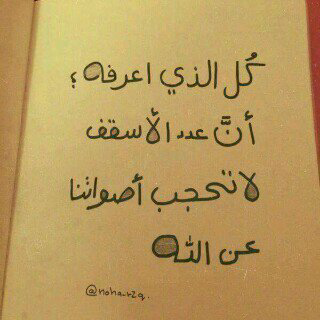 كُل الذي اعرفه ؟
أنَّ عدد الأسقف
لا تحجب أصواتنا
عن الله
@noharzq.